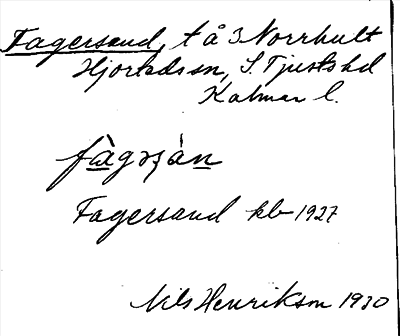 Fagersand, t å 3 Norrhult
Hjorteds sn, S. Tjusts hd
Kalmar l.
Fagersand kb 1927
Nils Henriksson 1930